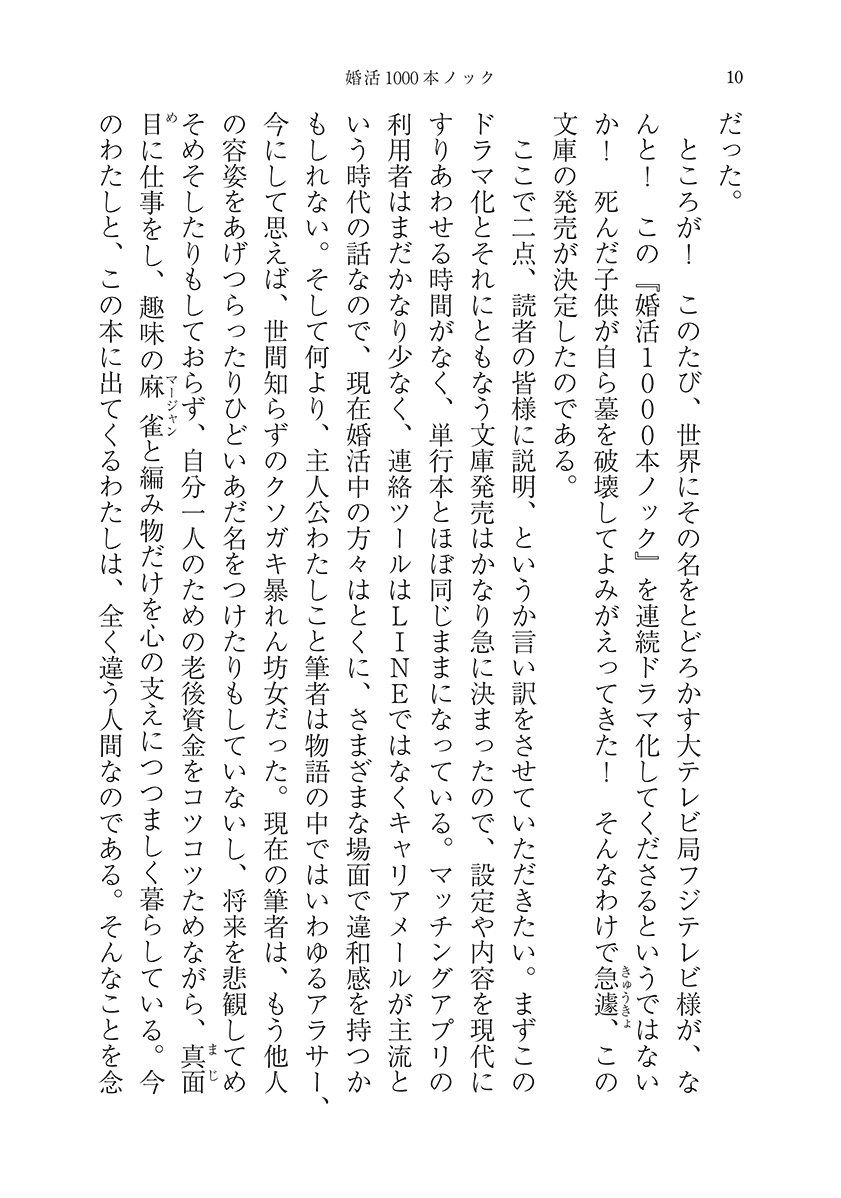 婚活1000本ノック
10
だった。
ところが！　このたび、世界にその名をとどろかす大テレビ局フジテレビ様が、な
んと！　この『婚活１０００本ノック』を連続ドラマ化してくださるというではない
か！　死んだ子供が自ら墓を破壊してよみがえってきた！　そんなわけで急遽、この
きゅうきょ
文庫の発売が決定したのである。
ここで二点、読者の皆様に説明、というか言い訳をさせていただきたい。まずこの
ドラマ化とそれにともなう文庫発売はかなり急に決まったので、設定や内容を現代に
すりあわせる時間がなく、単行本とほぼ同じままになっている。マッチングアプリの
利用者はまだかなり少なく、連絡ツールはＬＩＮＥではなくキャリアメールが主流と
いう時代の話なので、現在婚活中の方々はとくに、さまざまな場面で違和感を持つか
もしれない。そして何より、主人公わたしこと筆者は物語の中ではいわゆるアラサー、
今にして思えば、世間知らずのクソガキ暴れん坊女だった。現在の筆者は、もう他人
の容姿をあげつらったりひどいあだ名をつけたりもしていないし、将来を悲観してめ
そめそしたりもしておらず、自分一人のための老後資金をコツコツためながら、真面
まじ
目に仕事をし、趣味の麻雀と編み物だけを心の支えにつつましく暮らしている。今
め
マージャン
のわたしと、この本に出てくるわたしは、全く違う人間なのである。そんなことを念